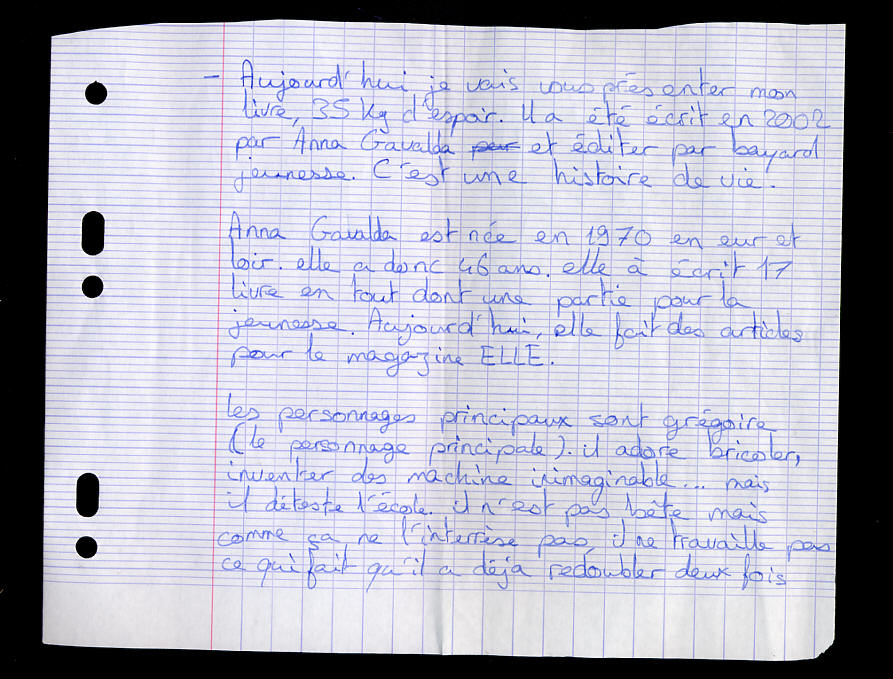 - Aujourd'hui je vais vous présenter mon
livre, 35 kg d'espoir. Il a été écrit en 2002
par Anna Gavalda par et éditer par bayard
jeunesse. C'est une histoire de vie.
Anna Gavalda est née en 1970 en eur et
loir. elle a donc 46 ans. elle à écrit 17
livre en tout dont une partie pour la
jeunesse. Aujourd'hui, elle fait des articles
pour le magazine ELLE.
Les personnages principaux sont grégoire
(le personnage principale). il adore bricoler,
inventer des machine inimaginable... mais
il déteste l'école. il n'est pas bête mais
comme ça ne l'interrèse pas, il ne travaille pas
ce qui fait qu'il a déja redoubler deux fois